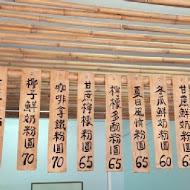 鮮奶粉圓
冬瓜鮮奶粉圓 60
夏日風情粉圓 65
檸檬多酚粉圓 65
甘蔗檸檬粉圓 65
咖啡拿鐵粉圓 70
椰子鮮奶粉圓 70